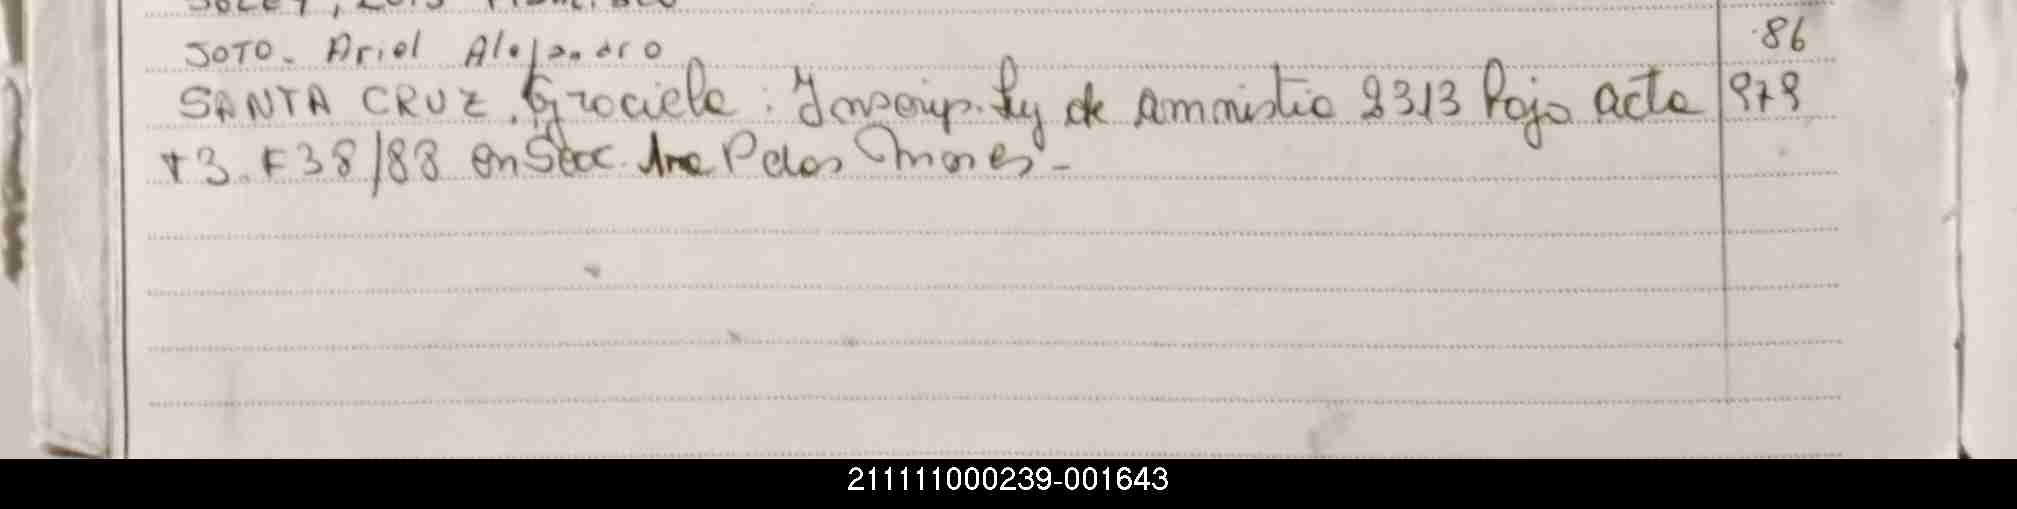 SOTO. Ariel Alejandro 86
SANTA CRUZ, Graciela: Inscrip. Ley de amnistia 2313 Bajo acta 979
t3. F38/88 en Secc. 1ra P de los
211111000239-001643